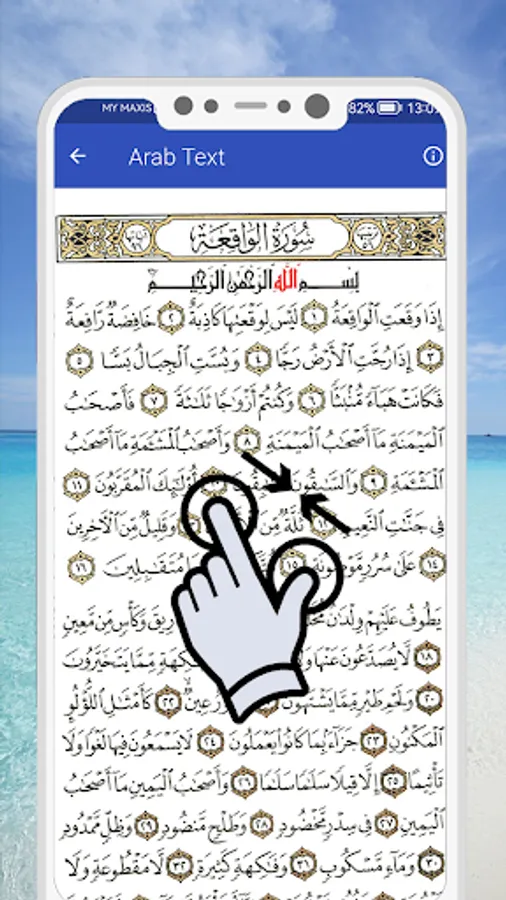 MY MAXIS 82%
Arab Text
سُورَةُ الْوَاقِعَةِ
بِسْمِ اللَّهِ الرَّحْمَٰنِ الرَّحِيمِ
إِذَا وَقَعَتِ ٱلْوَاقِعَةُ ١ لَيْسَ لِوَقْعَتِهَا كَاذِبَةٌ ٢ خَافِضَةٌ رَّافِعَةٌ
٣ إِذَا رُجَّتِ ٱلْأَرْضُ رَجًّا ٤ وَبُسَّتِ ٱلْجِبَالُ بَسًّا ٥
فَكَانَتْ هَبَآءً مُّنۢبَثًّا ٦ وَكُنتُمْ أَزْوَٰجًا ثَلَٰثَةً ٧ فَأَصْحَٰبُ
ٱلْمَيْمَنَةِ مَآ أَصْحَٰبُ ٱلْمَيْمَنَةِ ٨ وَأَصْحَٰبُ ٱلْمَشْـَٔمَةِ مَآ أَصْحَٰبُ
ٱلْمَشْـَٔمَةِ ٩ وَٱلسَّٰبِقُونَ أُو۟لَٰٓئِكَ ٱلْمُقَرَّبُونَ ١١
فِى جَنَّٰتِ ٱلنَّعِيمِ ١٢ ثُلَّةٌ مِّنَ وَقَلِيلٌ مِّنَ ٱلْءَاخِرِينَ
١٤ عَلَىٰ سُرُرٍ مَّوْضُونَةٍ ١٥ مُتَقَٰبِلِينَ ١٦
يَطُوفُ عَلَيْهِمْ وِلْدَٰنٌ وَكَأْسٍ مِّن مَّعِينٍ
١٨ لَّا يُصَدَّعُونَ عَنْهَا وَفَٰكِهَةٍ مِّمَّا يَتَخَيَّرُونَ
٢٠ وَلَحْمِ طَيْرٍ مِّمَّا يَشْتَهُونَ عِينٌ ٢٢ كَأَمْثَٰلِ ٱللُّؤْلُؤِ
ٱلْمَكْنُونِ ٢٣ جَزَآءًۢ بِمَا كَانُوا۟ يَعْمَلُونَ ٢٤ لَا يَسْمَعُونَ فِيهَا لَغْوًا وَلَا
تَأْثِيمًا ٢٥ إِلَّا قِيلًا سَلَٰمًا سَلَٰمًا ٢٦ وَأَصْحَٰبُ ٱلْيَمِينِ مَآ أَصْحَٰبُ
ٱلْيَمِينِ ٢٧ فِى سِدْرٍ مَّخْضُودٍ ٢٨ وَطَلْحٍ مَّنضُودٍ ٢٩ وَظِلٍّ مَّمْدُودٍ
٣٠ وَمَآءٍ مَّسْكُوبٍ ٣١ وَفَٰكِهَةٍ كَثِيرَةٍ ٣٢ لَّا مَقْطُوعَةٍ وَلَا